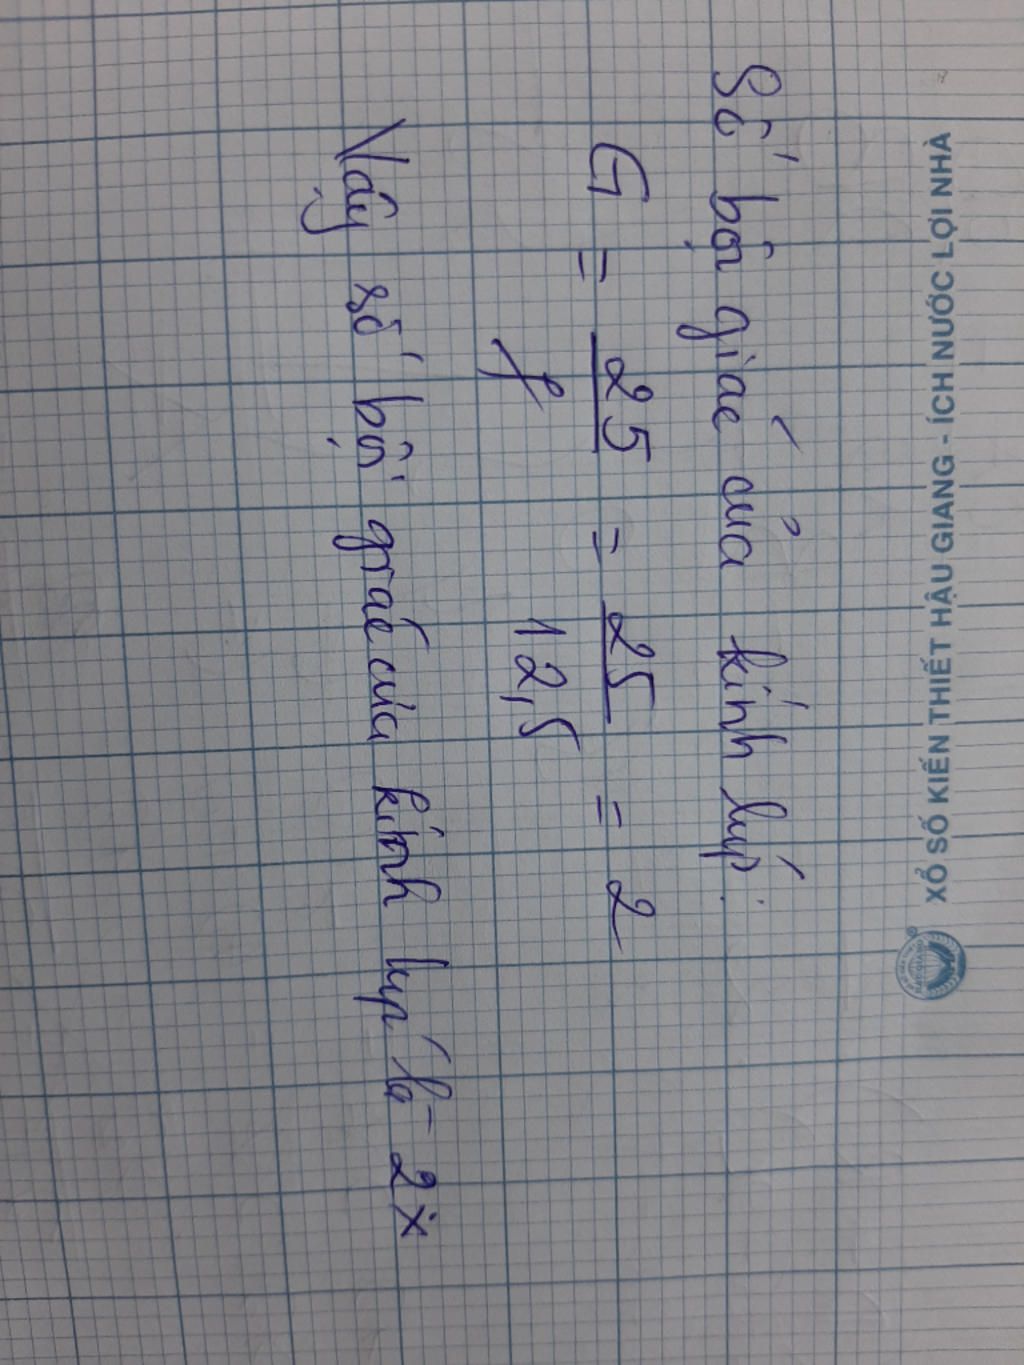 XỔ SỐ KIẾN THIẾT HẬU GIANG - ÍCH NƯỚC LỢI NHÀ
Số bội giác của kính lúp:
G = 25/f = 25/12,5 = 2
Vậy số bội giác của kính lúp là 2x